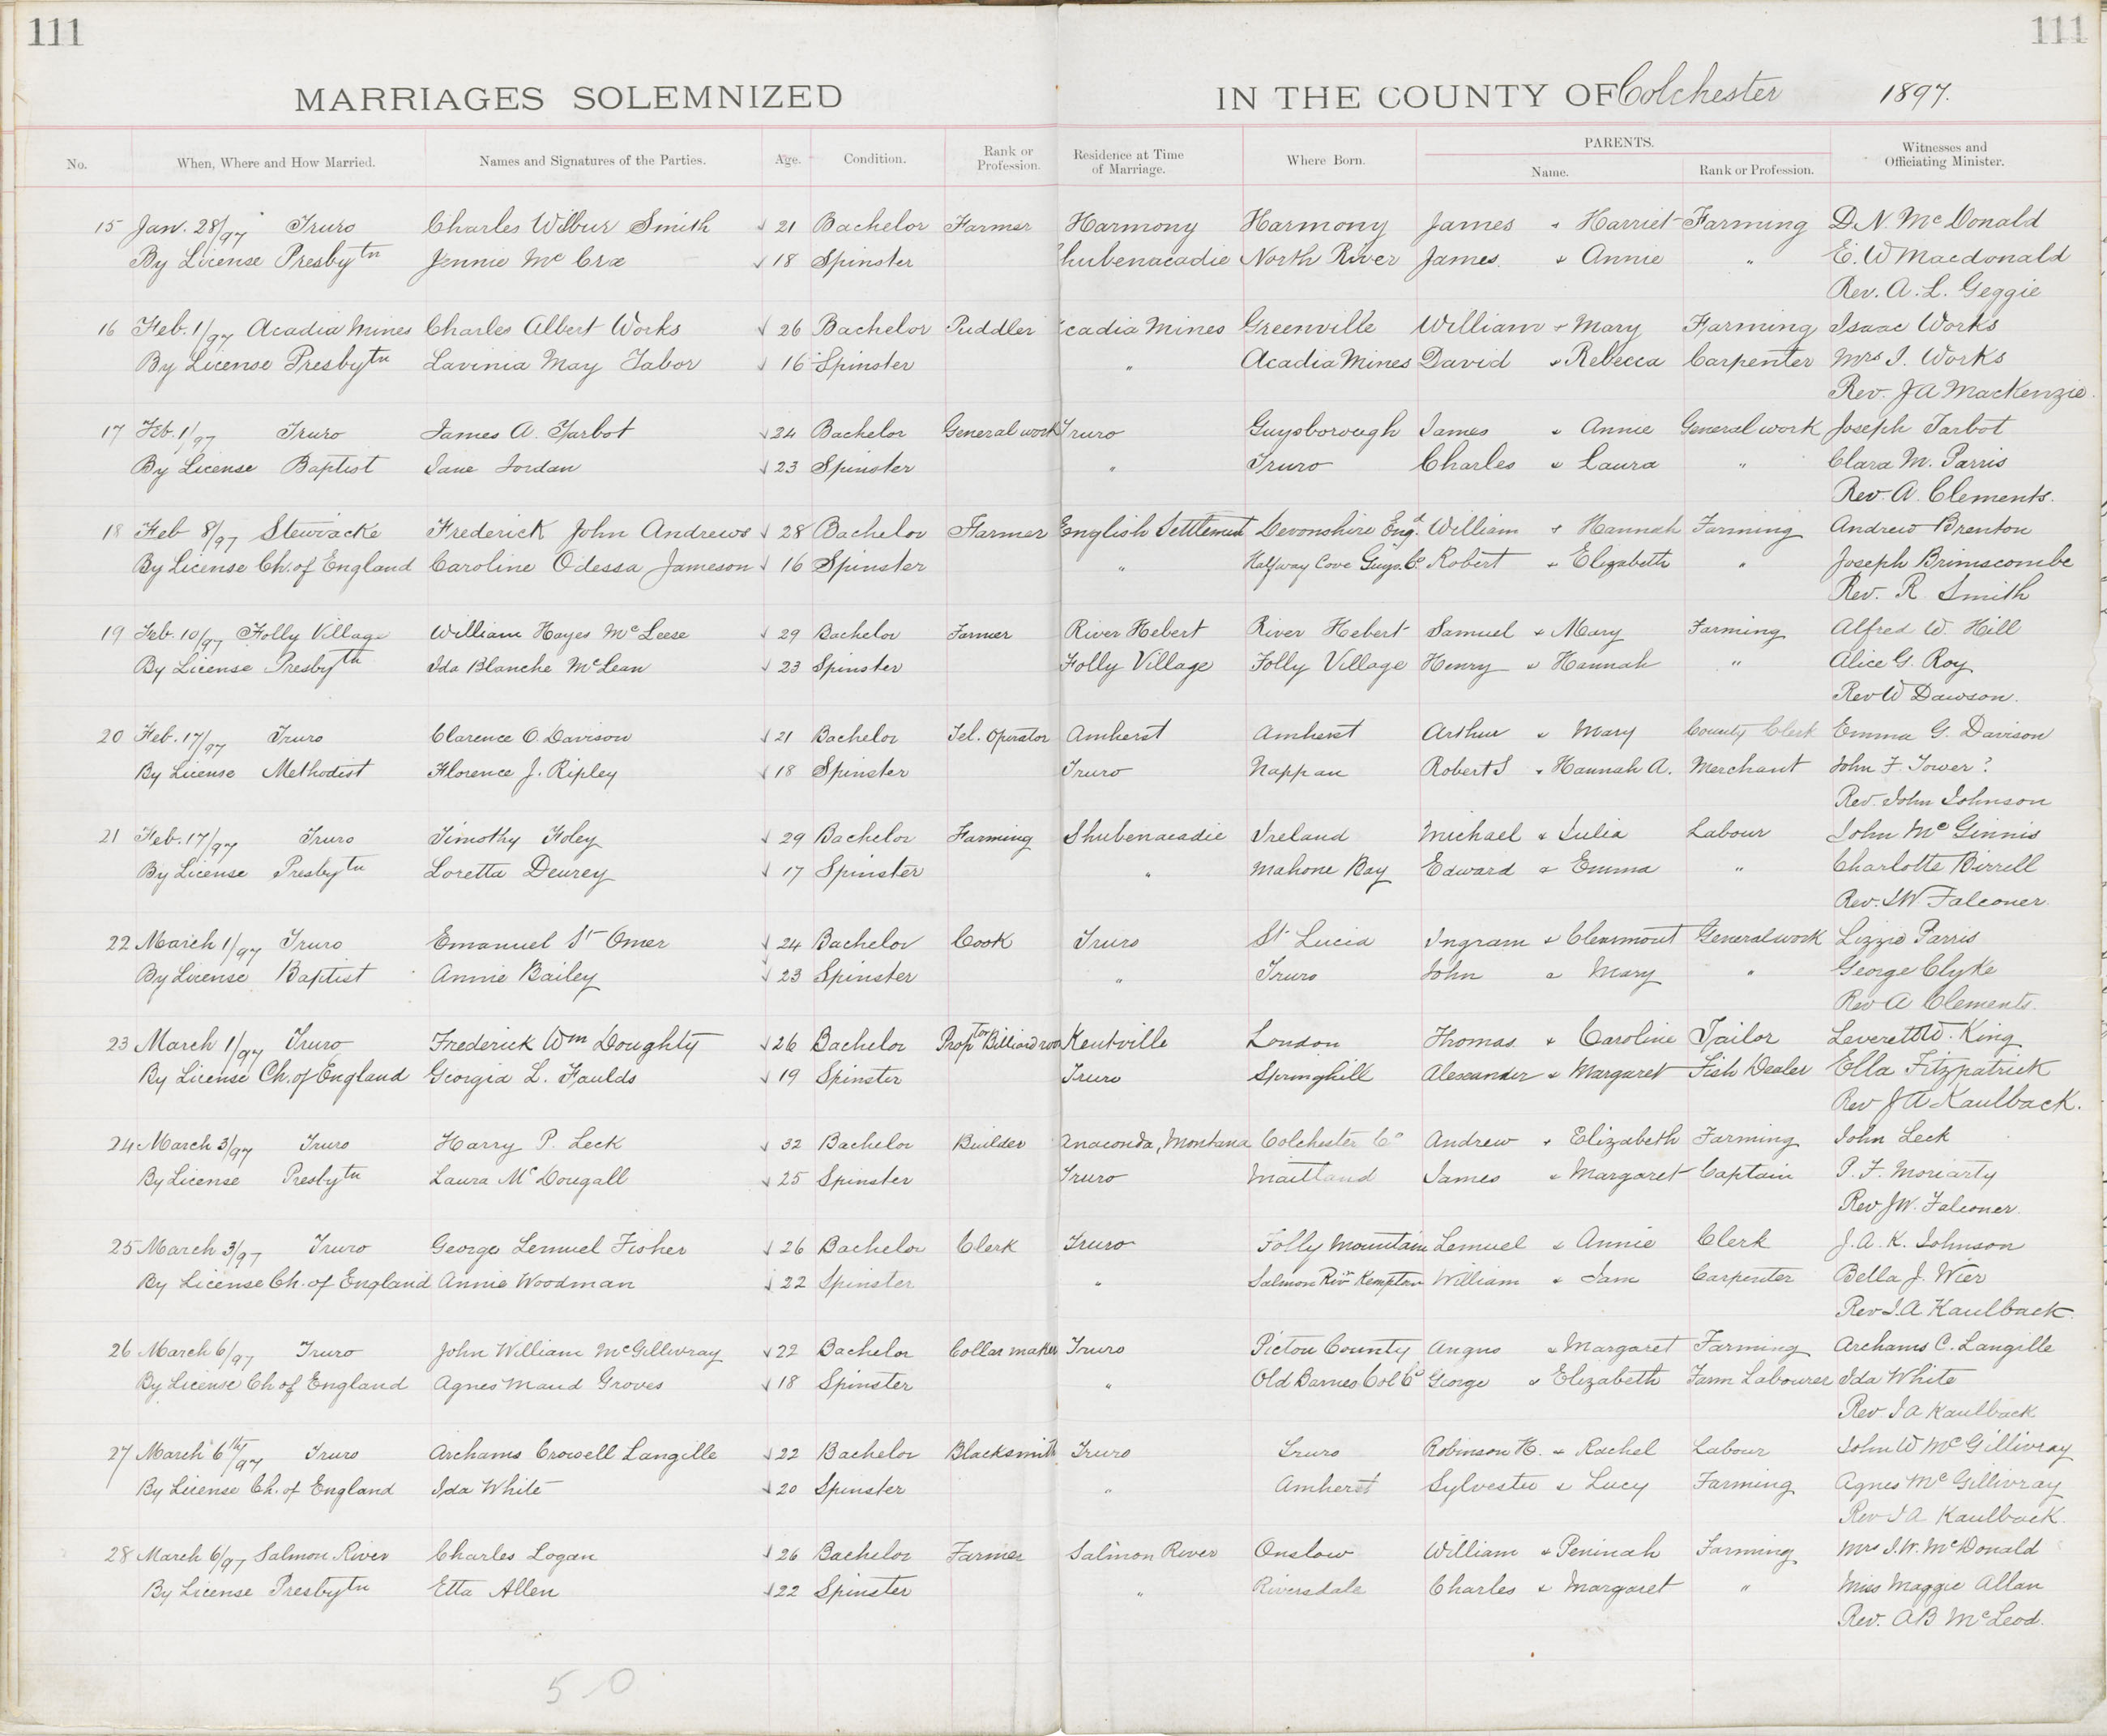 111
111
MARRIAGES SOLEMNIZED IN THE COUNTY OF Colchester 1897.
No. When, Where and How Married. Names and Signatures of the Parties. Age. Condition. Rank or Profession. Residence at Time of Marriage. Where Born. PARENTS. Name. Rank or Profession. Witnesses and Officiating Minister.
15 Jan. 28/97 Truro Charles Wilbur Smith 21 Bachelor Farmer Harmony Harmony James & Harriet Farming D. N. McDonald
By License Presbytn Jennie McCrae 18 Spinster Shubenacadie North River James & Annie " E. W Macdonald
Rev. A. L. Geggie
16 Feb. 1/97 Acadia Mines Charles Albert Works 26 Bachelor Puddler Acadia Mines Greenville William & Mary Farming Isaac Works
By License Presbytn Lavinia May Tabor 16 Spinster " Acadia Mines David & Rebecca Carpenter Mrs I. Works
Rev. J A MacKenzie.
17 Feb. 1/97 Truro James A. Tarbot 24 Bachelor General work Truro Guysborough James & Annie General work Joseph Tarbot
By License Baptist Jane Jordan 23 Spinster " Truro Charles & Laura " Clara M. Parris
Rev. A. Clements.
18 Feb 8/97 Stewiacke Frederick John Andrews 28 Bachelor Farmer English Settlement Devonshire Engd. William & Hannah Farming Andrew Brenton
By License Ch. of England Caroline Odessa Jameson 16 Spinster " Halfway Cove Guys. Co. Robert & Elizabeth " Joseph Brimscombe
Rev. R Smith
19 Feb. 10/97 Folly Village William Hayes McLeese 29 Bachelor Farmer River Hebert River Hebert Samuel & Mary Farming Alfred W. Hill
By License Presbytn Ida Blanche McLean 23 Spinster Folly Village Folly Village Henry & Hannah " Alice G. Roy
Rev W Dawson.
20 Feb. 17/97 Truro Clarence O. Davison 21 Bachelor Tel. Operator Amherst Amherst Arthur & Mary County Clerk Emma G. Davison
By License Methodist Florence J. Ripley 18 Spinster Truro Nappan Robert S & Hannah A. Merchant John F Tower ?
Rev. John Johnson
21 Feb. 17/97 Truro Timothy Foley 29 Bachelor Farming Shubenacadie Ireland Michael & Julia Labour John McGinnis
By License Presbytn Loretta Deurey 17 Spinster " Mahone Bay Edward & Emma " Charlotte Birrell
Rev. J W. Falconer.
22 March 1/97 Truro Emanuel St Omer 24 Bachelor Cook Truro St Lucia Ingram & Clearmont General work Lizzie Parris
By License Baptist Annie Bailey 23 Spinster " Truro John & Mary " George Clyke
Rev A Clements.
23 March 1/97 Truro Frederick Wm Doughty 26 Bachelor Proptor Billiard room Kentville London Thomas & Caroline Tailor Leverett W. King
By License Ch. of England Georgia L. Faulds 19 Spinster Truro Springhill Alexander & Margaret Fish Dealer Ella Fitzpatrick
Rev J A Kaulback.
24 March 3/97 Truro Harry P. Leck 32 Bachelor Builder Anaconda, Montana Colchester Co Andrew & Elizabeth Farming John Leck
By License Presbytn Laura McDougall 25 Spinster Truro Maitland James & Margaret Captain P. F. Moriarty
Rev J W. Falconer.
25 March 3/97 Truro George Lemuel Fisher 26 Bachelor Clerk Truro Folly Mountain Lemuel & Annie Clerk J. A. K. Johnson
By License Ch. of England Annie Woodman 22 Spinster " Salmon Rivr Kemptown William & Jane Carpenter Bella J. Wier
Rev J. A Kaulback
26 March 6/97 Truro John William McGillivray 22 Bachelor Collar maker Truro Pictou County Angus & Margaret Farming Archams C. Langille
By License Ch of England Agnes Maud Groves 18 Spinster " Old Barnes Col Co George & Elizabeth Farm Labourer Ida White
Rev J A Kaulback
27 March 6th/97 Truro Archams Crowell Langille 22 Bachelor Blacksmith Truro Truro Robinson H. & Rachel Labour John W McGillivray
By License Ch. of England Ida White 20 Spinster " Amherst Sylvester & Lucy Farming Agnes McGillivray
Rev J A Kaulback.
28 March 6/97 Salmon River Charles Logan 26 Bachelor Farmer Salmon River Onslow William & Peninah Farming Mrs J. W. McDonald
By License Presbytn Etta Allen 22 Spinster " Riversdale Charles & Margaret " Miss Maggie Allan
Rev. A B McLeod.
50